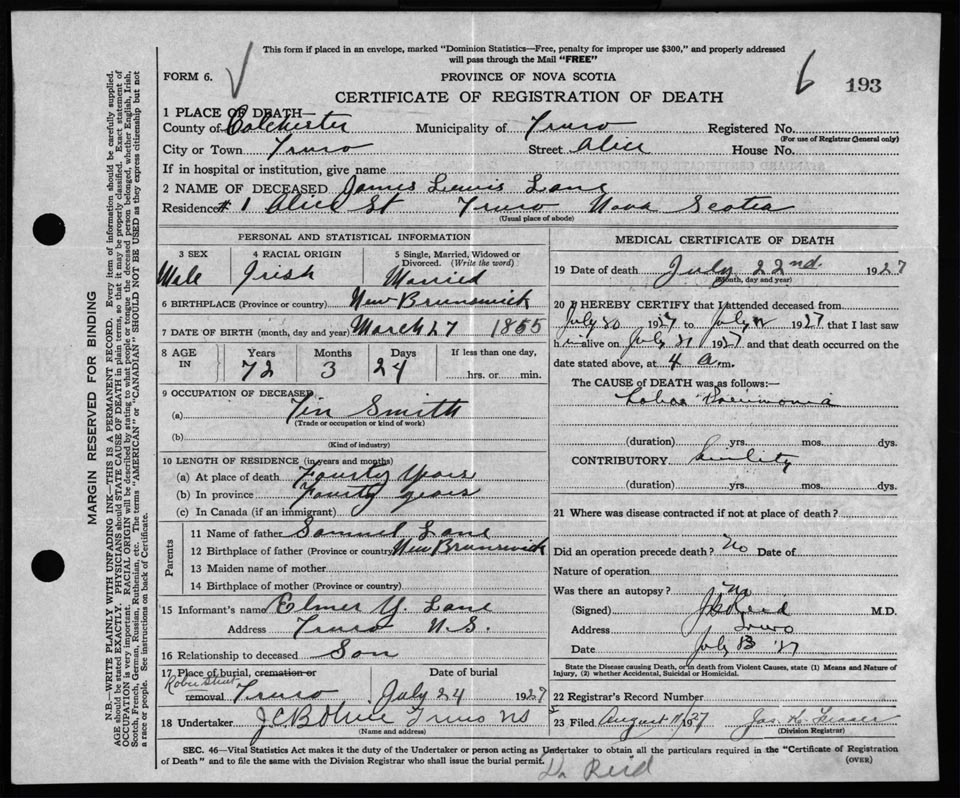 This form if placed in an envelope, marked "Dominion Statistics—Free, penalty for improper use $300," and properly addressed
will pass through the Mail "FREE"
FORM 6.
PROVINCE OF NOVA SCOTIA
6
193
CERTIFICATE OF REGISTRATION OF DEATH
1 PLACE OF DEATH—
County of Colchester Municipality of Truro Registered No.
(For use of Registrar General only)
City or Town Truro Street Alice House No.
If in hospital or institution, give name
2 NAME OF DECEASED James Lewis Lane
Residence # 1 Alice St Truro Nova Scotia
(Usual place of abode)
PERSONAL AND STATISTICAL INFORMATION
3 SEX 4 RACIAL ORIGIN 5 Single, Married, Widowed or
Divorced. (Write the word)
Male Irish Married
6 BIRTHPLACE (Province or country) New Brunswick
7 DATE OF BIRTH (month, day and year) March 27 1855
8 AGE IN Years Months Days If less than one day,
72 3 24 hrs. or min.
9 OCCUPATION OF DECEASED
(a) Tin Smith
(Trade or occupation or kind of work)
(b)
(Kind of industry)
10 LENGTH OF RESIDENCE (in years and months)
(a) At place of death Fourty Years
(b) In province Fourty years
(c) In Canada (if an immigrant)
Parents
11 Name of father Samuel Lane
12 Birthplace of father (Province or country) New Brunswick
13 Maiden name of mother
14 Birthplace of mother (Province or country)
15 Informant's name Elmer Y. Lane
Address Truro N.S.
16 Relationship to deceased Son
17 Place of burial, cremation or Date of burial
Robie Street
removal Truro July 24 1927
18 Undertaker Truro NS
(Name and address)
MEDICAL CERTIFICATE OF DEATH
19 Date of death July 22nd. 1927
(Month, day and year)
20 I HEREBY CERTIFY that I attended deceased from
July 20 1927 to July 1927 that I last saw
him alive on July 21 1927 and that death occurred on the
date stated above, at 4 a m.
The CAUSE OF DEATH was as follows:—
Lobar Pneumonia
(duration) yrs. mos. dys.
CONTRIBUTORY Senility
(duration) yrs. mos. dys.
21 Where was disease contracted if not at place of death?
Did an operation precede death? no Date of
Nature of operation
Was there an autopsy? No
(Signed) Reid M.D.
Address Truro
Date July 27
State the Disease causing Death, or in death from Violent Causes, state (1) Means and Nature
of Injury, (2) whether Accidental, Suicidal or Homicidal.
22 Registrar's Record Number
23 Filed August 1927 Jas. K. Fraser
(Division Registrar)
SEC. 46—Vital Statistics Act makes it the duty of the Undertaker or person acting as Undertaker to obtain all the particulars required in the "Certificate of Registration
of Death" and to file the same with the Division Registrar who shall issue the burial permit.
(OVER)
Dr Reid
MARGIN RESERVED FOR BINDING
N.B.—WRITE PLAINLY WITH UNFADING INK—THIS IS A PERMANENT RECORD. Every item of information should be carefully supplied.
AGE should be stated EXACTLY. PHYSICIANS should STATE CAUSE OF DEATH in plain terms, so that it may be properly classified. Exact statement of
OCCUPATION is very important. RACIAL ORIGIN will be described by stating to what people or tongue the deceased person belonged, whether English, Irish,
Scotch, French, German, Russian, Ruthenian, etc. The terms "AMERICAN" or "CANADIAN" SHOULD NOT BE USED as they express citizenship but not
a race or people. See instructions on back of Certificate.